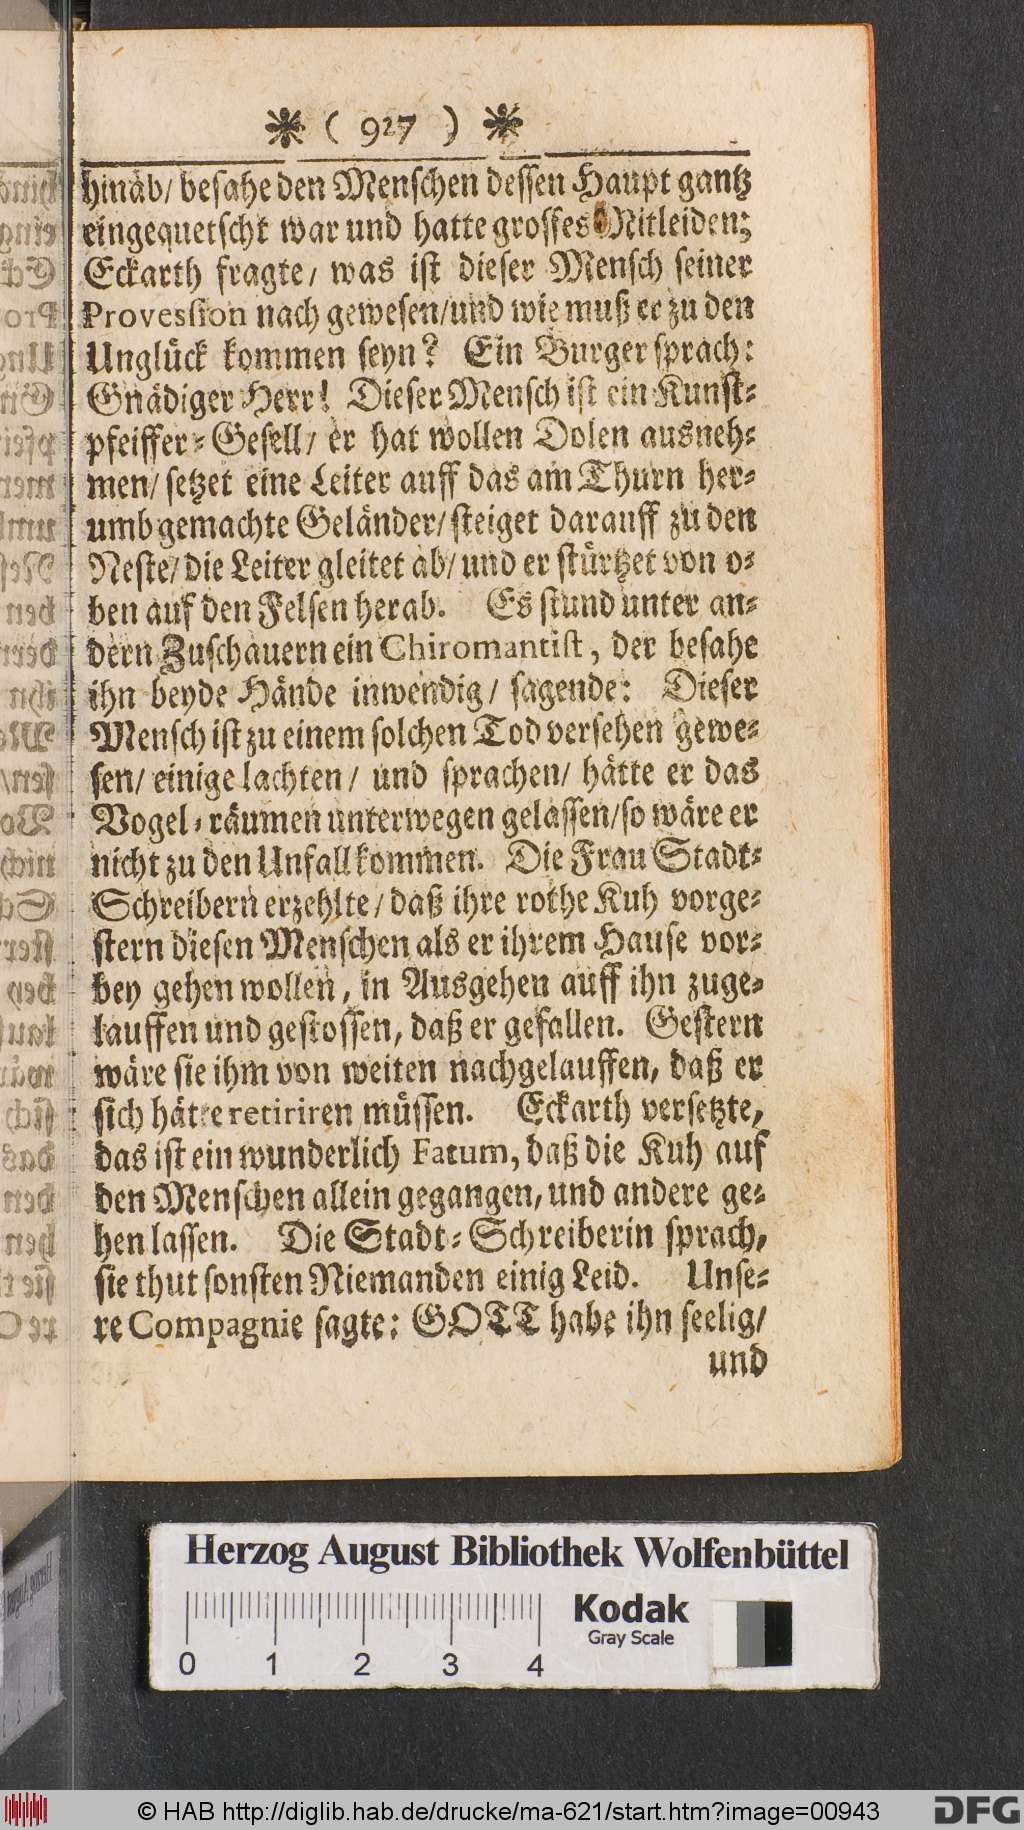 * ( 927 ) *
hinab/ besahe den Menschen dessen Haupt gantz
eingequetscht war und hatte grosses Mitleiden;
Eckarth fragte/ was ist dieser Mensch seiner
Provession nach gewesen/und wie muß er zu den
Unglück kommen seyn? Ein Burger sprach:
Gnädiger Herr! Dieser Mensch ist ein Kunst-
pfeiffer-Gesell/ er hat wollen Dolen ausneh-
men/ setzet eine Leiter auff das am Thurn her-
umb gemachte Geländer/ steiget darauff zu den
Neste/ die Leiter gleitet ab/ und er stürtzet von o-
ben auf den Felsen herab. Es stund unter an-
dern Zuschauern ein Chiromantist, der besahe
ihn beyde Hände inwendig/ sagende: Dieser
Mensch ist zu einem solchen Tod versehen gewe-
sen/ einige lachten/ und sprachen/ hätte er das
Vogel-räumen unterwegen gelassen/so wäre er
nicht zu den Unfall kommen. Die Frau Stadt-
Schreibern erzehlte/ daß ihre rothe Kuh vorge-
stern diesen Menschen als er ihrem Hause vor-
bey gehen wollen, in Ausgehen auff ihn zuge-
lauffen und gestossen, daß er gefallen. Gestern
wäre sie ihm von weiten nachgelauffen, daß er
sich hätte retiriren müssen. Eckarth versetzte,
das ist ein wunderlich Fatum, daß die Kuh auf
den Menschen allein gegangen, und andere ge-
hen lassen. Die Stadt-Schreiberin sprach,
sie thut sonsten Niemanden einig Leid. Unse-
re Compagnie sagte: GOTT habe ihn seelig/
und
Herzog August Bibliothek Wolfenbüttel
Kodak
Gray Scale
0 1 2 3 4
© HAB http://diglib.hab.de/drucke/ma-621/start.htm?image=00943
DFG